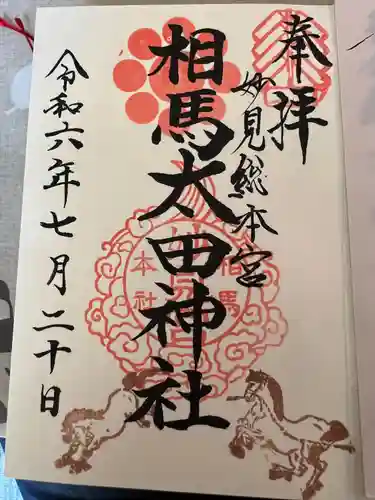 奉拝
妙見総本宮
相馬太田神社
令和六年七月二十日
相馬
本社